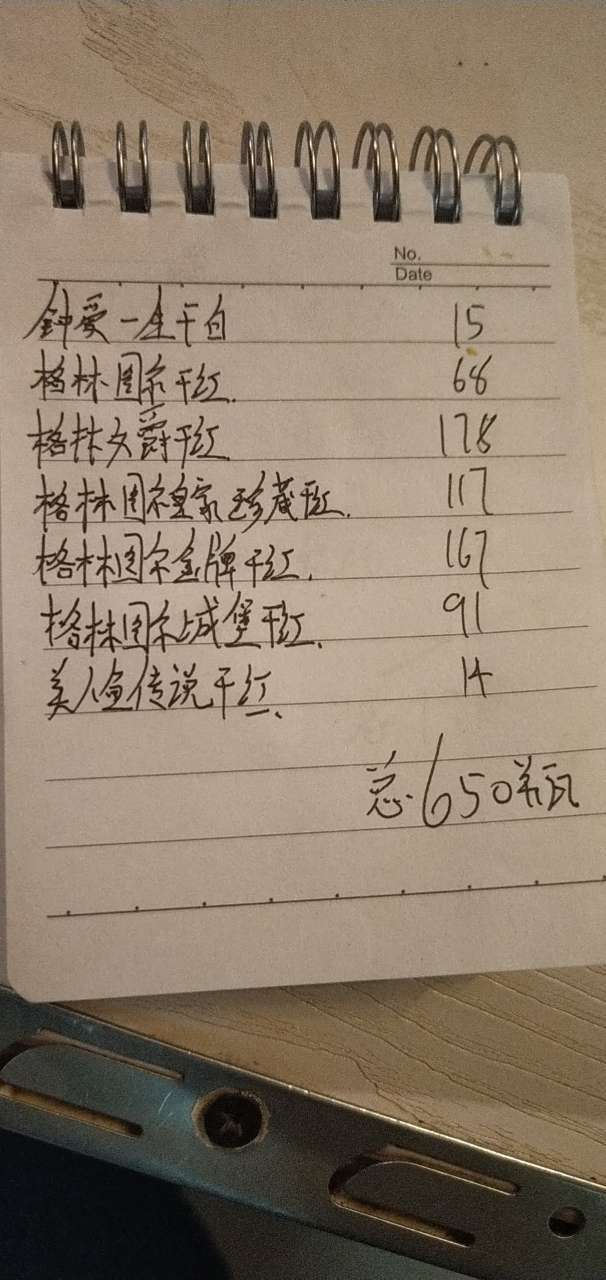 No.
Date
钟爱一生干白 15
格林图尔干红. 68
格林女爵干红 178
格林图尔皇家珍藏干红. 117
格林图尔金牌干红. 167
格林图尔城堡干红. 91
美人鱼传说干红、 14
总.650瓶